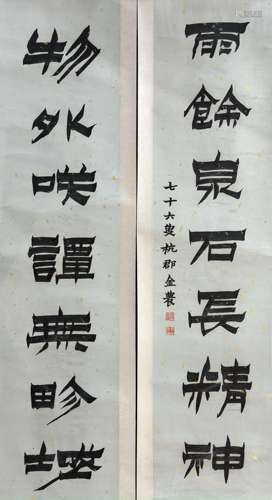 雨餘泉石長精神
物外咲譚無畛域
七十六叟杭郡金農